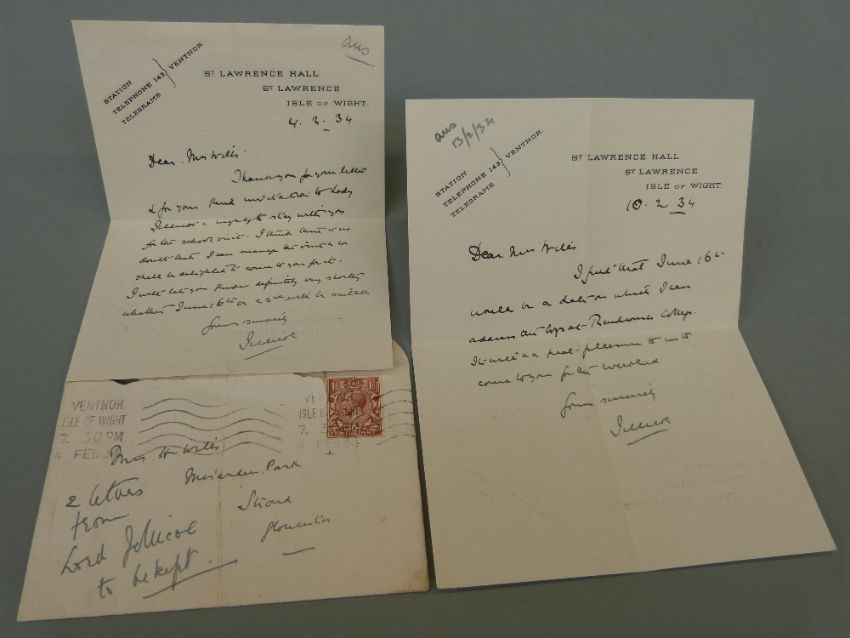 ans
STATION
TELEPHONE 143
TELEGRAMS
VENTNOR
ST LAWRENCE HALL
ST LAWRENCE
ISLE OF WIGHT.
4. 2. 34
Dear Mrs Wills.
Thank you for your letter
& for your kind invitation to Lady
Jellicoe & myself to stay with you
for the school visit. I think there is no
doubt that I can manage the visit & we
shall be delighted to come to you for it.
I will let you know definitely very shortly
whether June 16th or 23rd will be suitable
Yours sincerely
Jellicoe
VENTNOR
ISLE OF WIGHT
7. 30 PM
4 FEB
Mrs H Wills
Miserden Park
Stroud
Gloucester
2 letters
from
Lord Jellicoe
to be kept.
ans
13/2/34
STATION
TELEPHONE 143
TELEGRAMS
VENTNOR.
ST LAWRENCE HALL
ST LAWRENCE
ISLE OF WIGHT.
10. 2. 34
Dear Mrs Wills
I find that June 16th
would be a date on which I can
address the boys at Rendcomb College.
It will be a real pleasure to us to
come to you for the weekend
Yours sincerely
Jellicoe